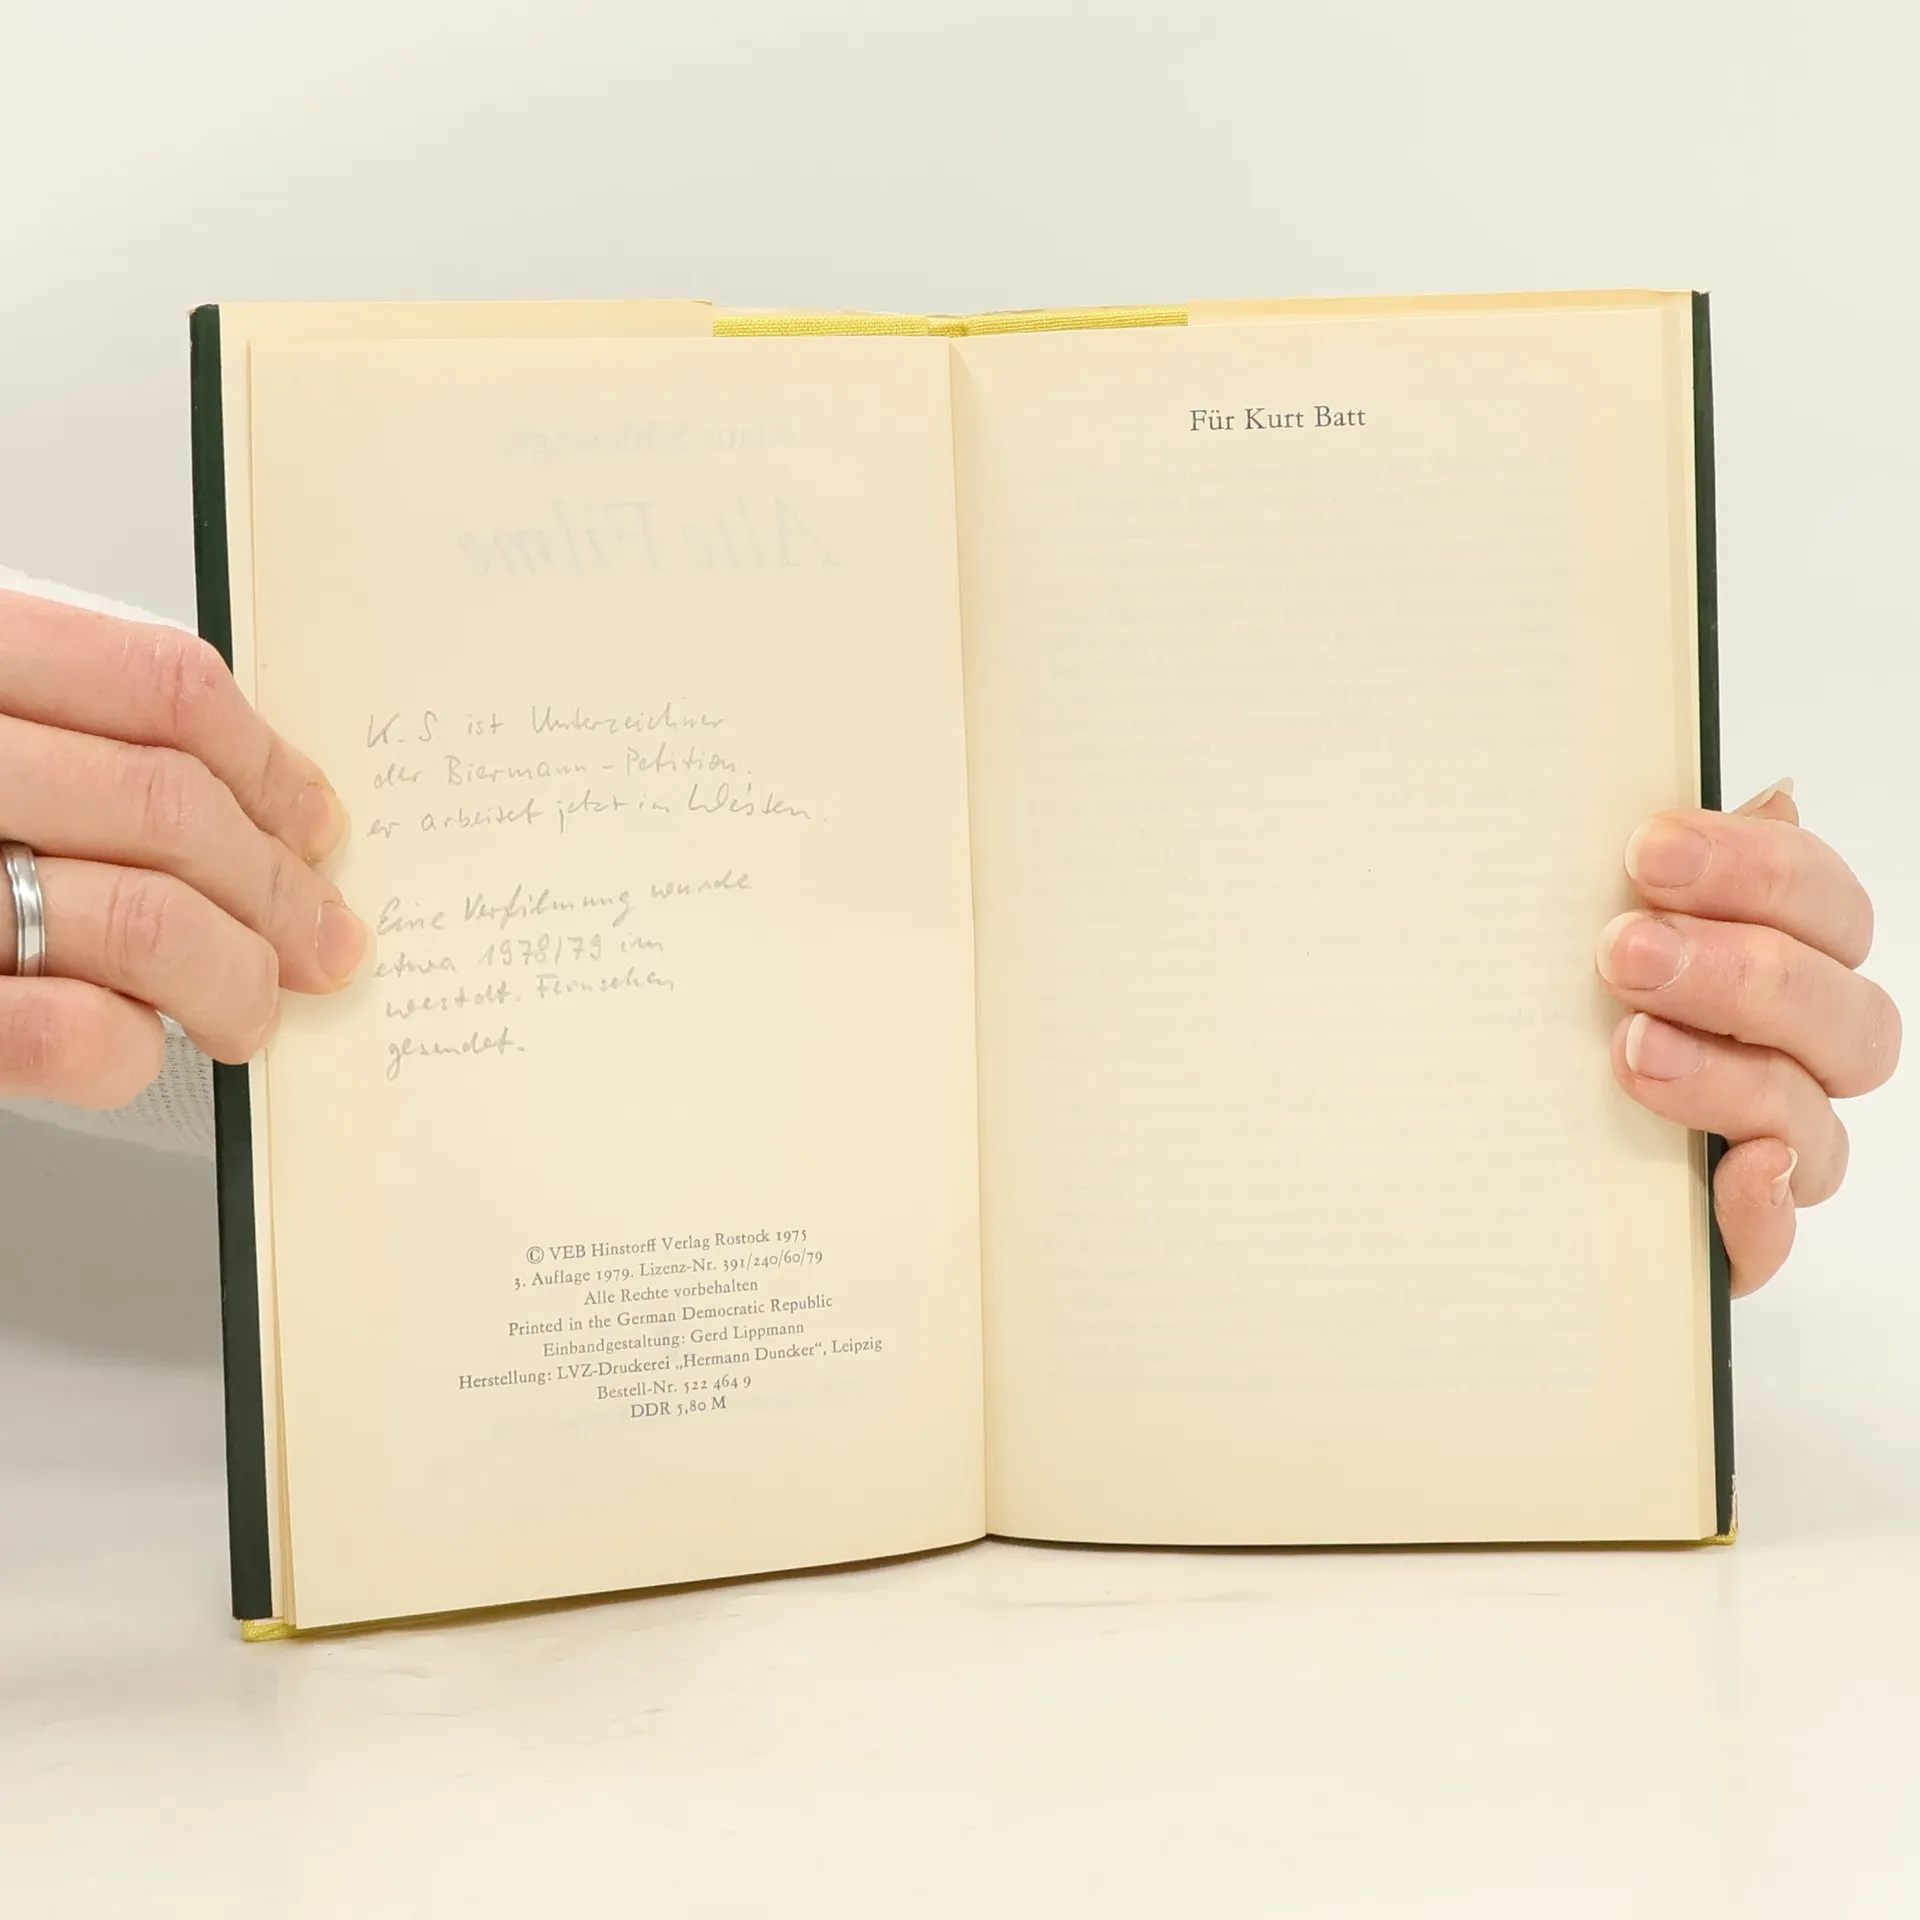 Klaus Schlesinger
Alte Filme
K. S. ist Unterzeichner
der Biermann-Petition.
er arbeitet jetzt im Westen.
Eine Verfilmung wurde
etwa 1978/79 im
westdt. Fernsehen
gesendet.
© VEB Hinstorff Verlag Rostock 1975
3. Auflage 1979. Lizenz-Nr. 391/240/60/79
Alle Rechte vorbehalten
Printed in the German Democratic Republic
Einbandgestaltung: Gerd Lippmann
Herstellung: LVZ-Druckerei „Hermann Duncker“, Leipzig
Bestell-Nr. 522 464 9
DDR 5,80 M
Für Kurt Batt